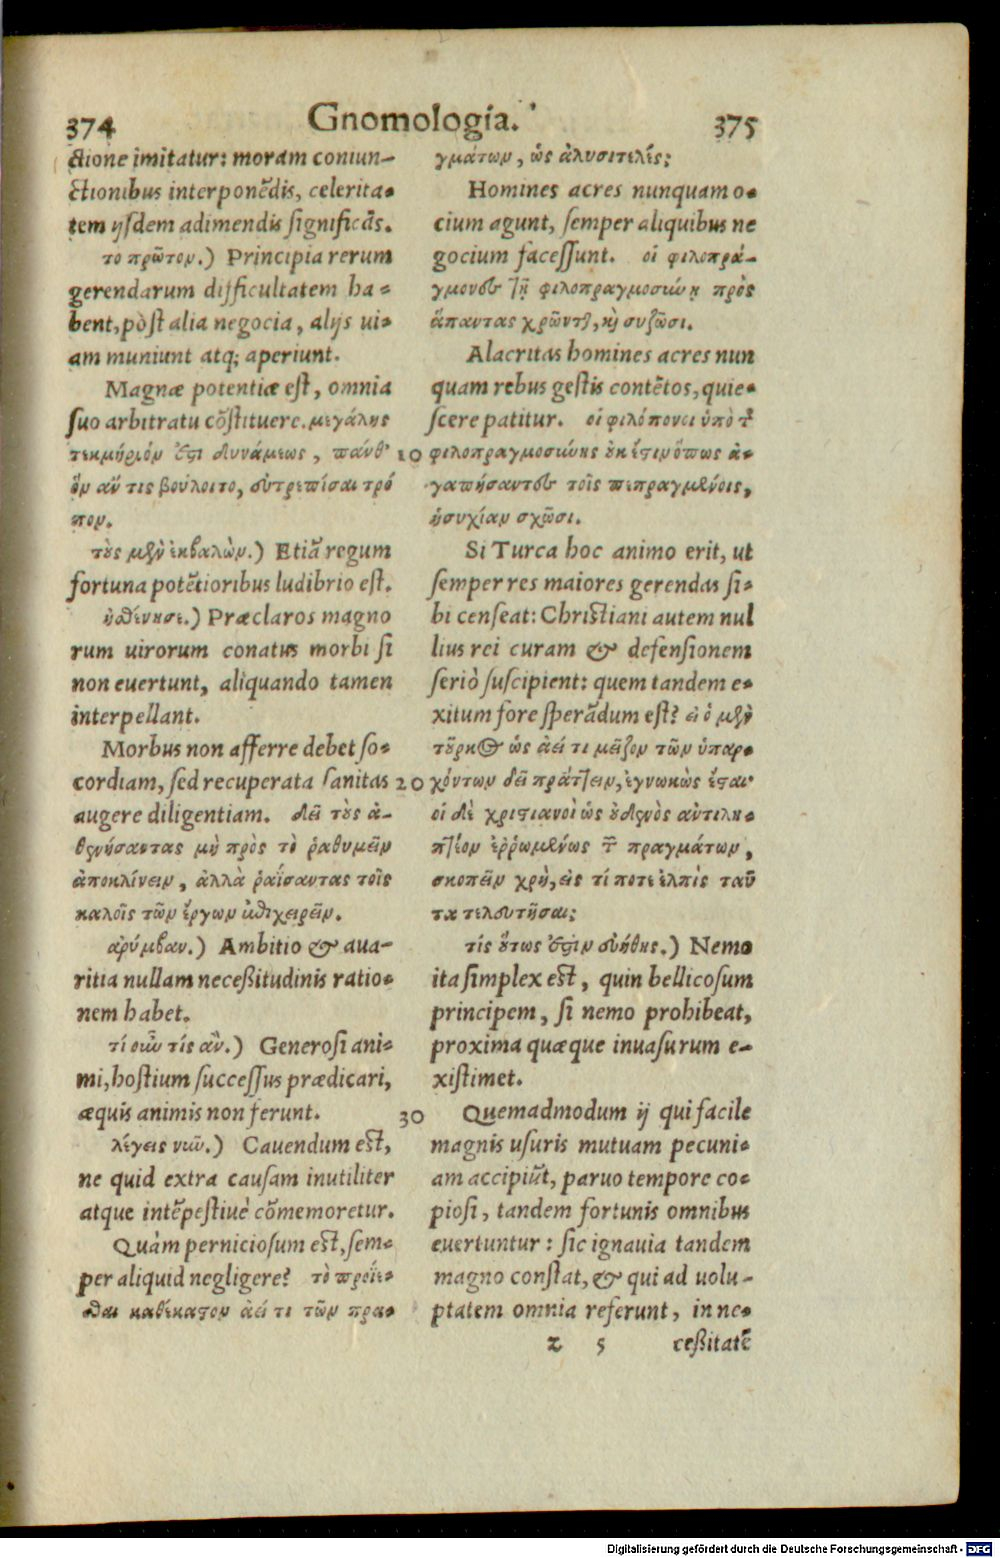 374 Gnomologia. 375
ctione imitatur: moram coniun-
ctionibus interponẽdis, celerita-
tem ijsdem adimendis significãs.
το πρῶτον.) Principia rerum
gerendarum difficultatem ha-
bent, pòst alia negocia, alijs ui-
am muniunt atq; aperiunt.
Magnæ potentiæ est, omnia
suo arbitratu cõstituere. μεγάλης
τεκμήριόν ἐστι δυνάμεως, πάνθ᾽
ὃν ἄν τις βούλοιτο, εὐτρεπίσαι τρό
πον.
τοὺς μὲν ἐκβαλὼν.) Etiã regum
fortuna potẽtioribus ludibrio est.
ἠσθένησε.) Præclaros magno
rum uirorum conatus morbi si
non euertunt, aliquando tamen
interpellant.
Morbus non afferre debet so-
cordiam, sed recuperata sanitas
augere diligentiam. δεῖ τοὺς ἀ-
σθενήσαντας μὴ πρὸς τὸ ῥαθυμεῖν
ἀποκλίνειν, ἀλλὰ ῥαΐσαντας τοῖς
καλοῖς τῶν ἔργων ἐπιχειρεῖν.
ἀρύμβαν.) Ambitio & aua-
ritia nullam neceßitudinis ratio-
nem habet.
τί οὖν τίς ἂν.) Generosi ani-
mi, hostium successus prædicari,
æquis animis non ferunt.
λέγεις νῦν.) Cauendum est,
ne quid extra causam inutiliter
atque intẽpestiuè cõmemoretur.
Quàm perniciosum est, sem-
per aliquid negligere? τὸ προΐε-
σθαι καθέκαστον ἀεί τι τῶν πρα-
10
20
30
γμάτων, ὡς ἀλυσιτελές;
Homines acres nunquam o-
cium agunt, semper aliquibus ne
gocium facessunt. οἱ φιλοπρά-
γμονες τῇ φιλοπραγμοσύνῃ πρὸς
ἅπαντας χρῶνται, καὶ συζῶσι.
Alacritas homines acres nun
quam rebus gestis contẽtos, quie-
scere patitur. οἱ φιλόπονοι ὑπὸ τῆς
φιλοπραγμοσύνης οὐκ ἔστιν ὅπως ἀ-
γαπήσαντες τοῖς πεπραγμένοις,
ἡσυχίαν σχῶσι.
Si Turca hoc animo erit, ut
semper res maiores gerendas si-
bi censeat: Christiani autem nul
lius rei curam & defensionem
seriò suscipient: quem tandem e-
xitum fore sperãdum est? εἰ ὁ μὲν
τοῦρκος ὡς ἀεί τι μεῖζον τῶν ὑπαρ-
χόντων δεῖ πράττειν, ἐγνωκὼς ἔσται·
οἱ δὲ χριστιανοὶ ὡς οὐδενὸς ἀντιλη-
πτέον ἐῤῥωμένως τῶν πραγμάτων,
σκοπεῖν χρὴ, εἰς τί ποτε ἐλπὶς ταῦ
τα τελευτῆσαι;
τίς οὕτως ἐστὶν εὐήθης.) Nemo
ita simplex est, quin bellicosum
principem, si nemo prohibeat,
proxima quæque inuasurum e-
xistimet.
Quemadmodum ij qui facile
magnis usuris mutuam pecuni-
am accipiũt, paruo tempore co-
piosi, tandem fortunis omnibus
euertuntur: sic ignauia tandem
magno constat, & qui ad uolu-
ptatem omnia referunt, in ne-
z 5 ceßitatẽ
Digitalisierung gefördert durch die Deutsche Forschungsgemeinschaft - DFG